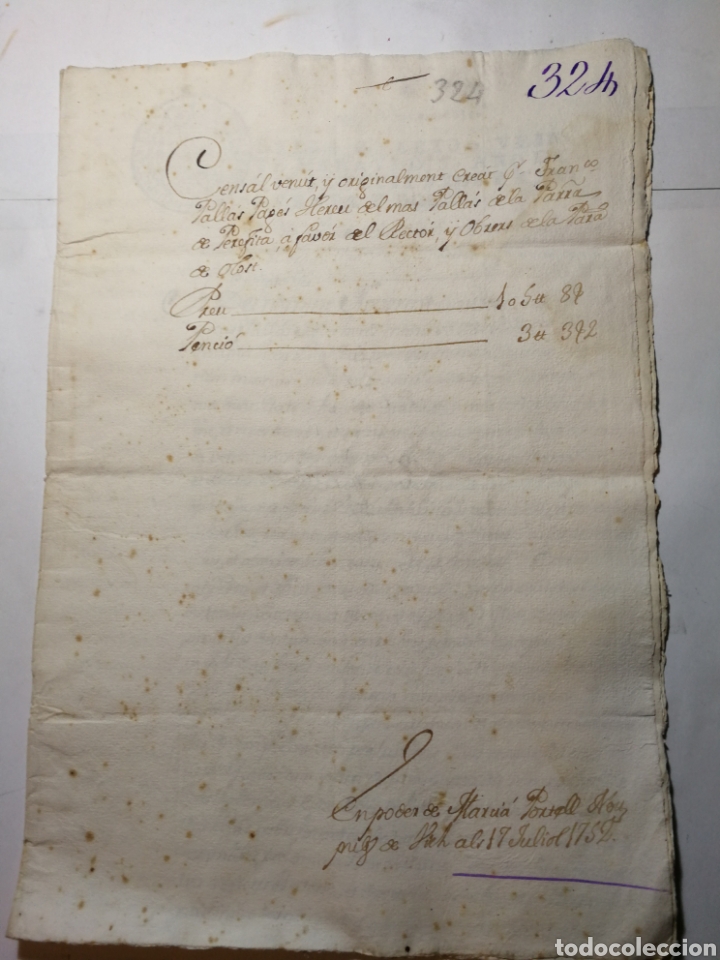 324 324
Censál venút, y originalment creat pr. Franco
Pallás Pagés Hereu del mas Pallás de la Parra
de Perafita, á favór del Rectór, y Obrers de la Para
de Olost.
Preu 105 ₶ 8
Penció 3 ₶ 3 2
En poder de Marciá Portell Not
de Vich als 17 Juliol 1752.
todocoleccion